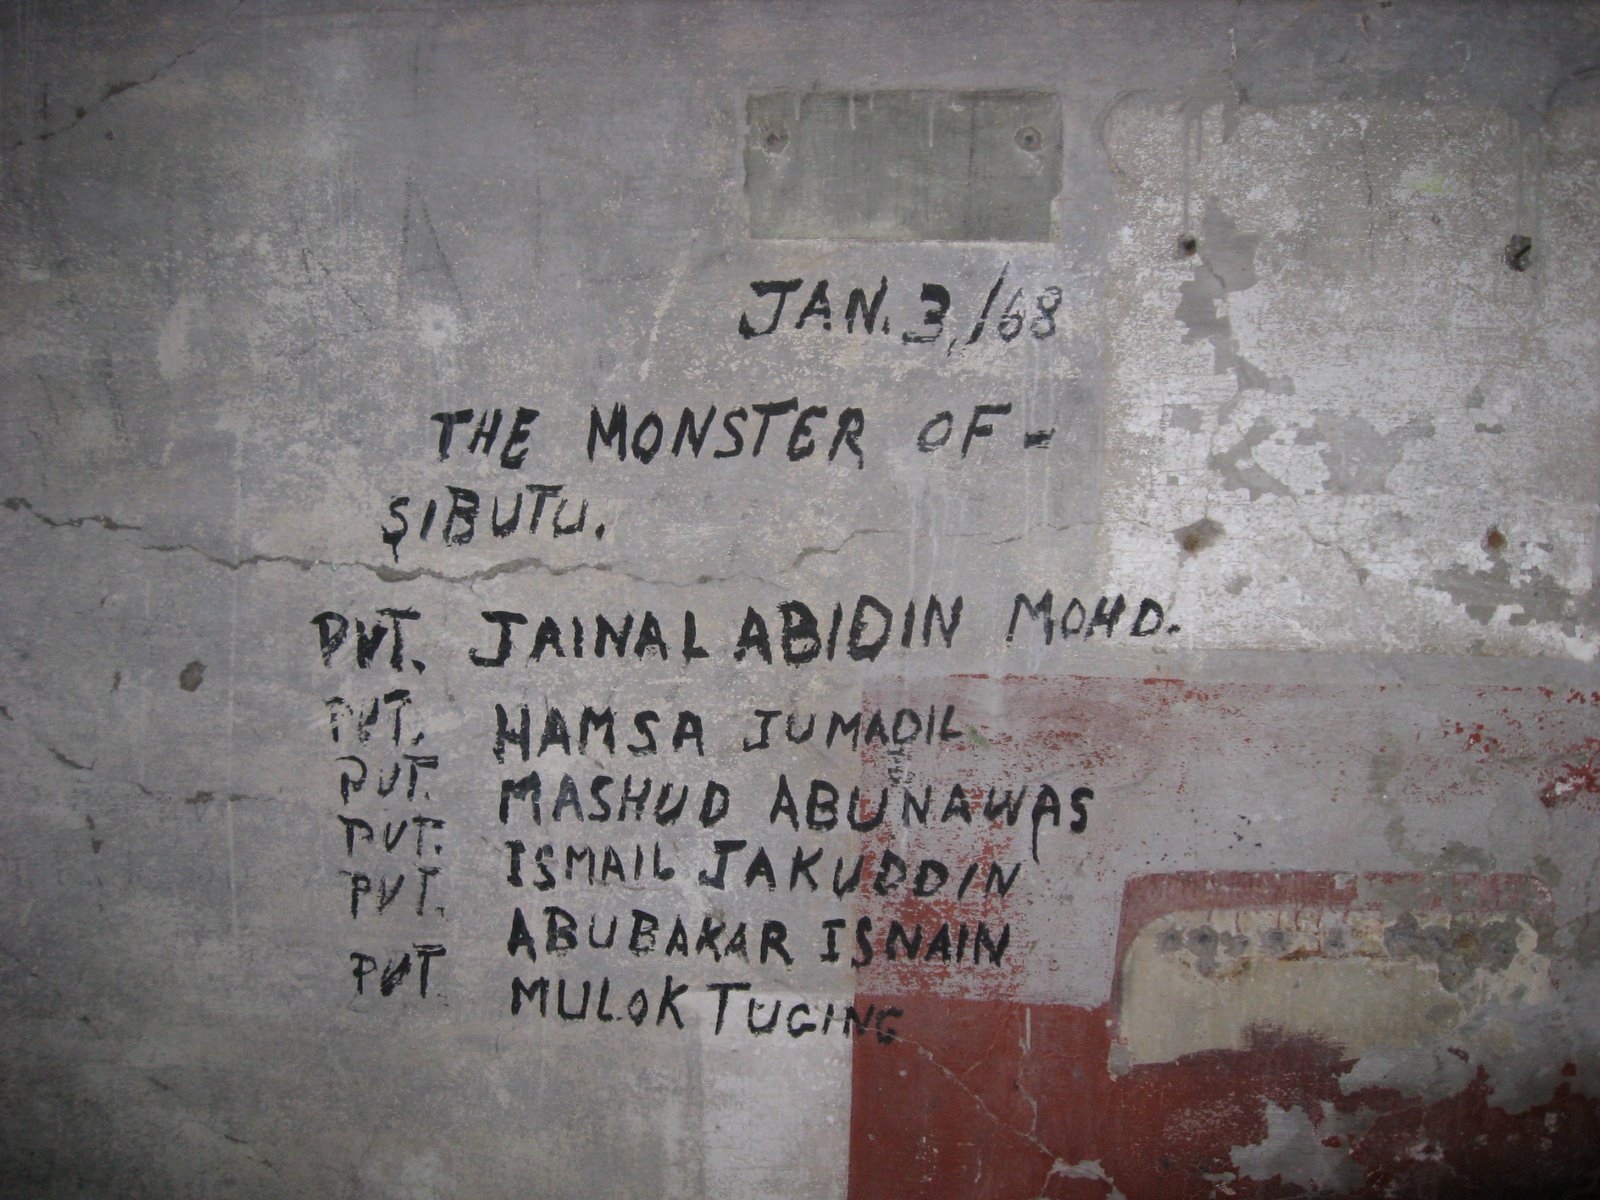 JAN. 3,/68
THE MONSTER OF-
SIBUTU.
PVT. JAINAL ABIDIN MOHD.
PVT. HAMSA JUMADIL
PVT. MASHUD ABUNAWAS
PVT. ISMAIL JAKUDDIN
PVT. ABUBAKAR ISNAIN
PVT MULOK TUGING